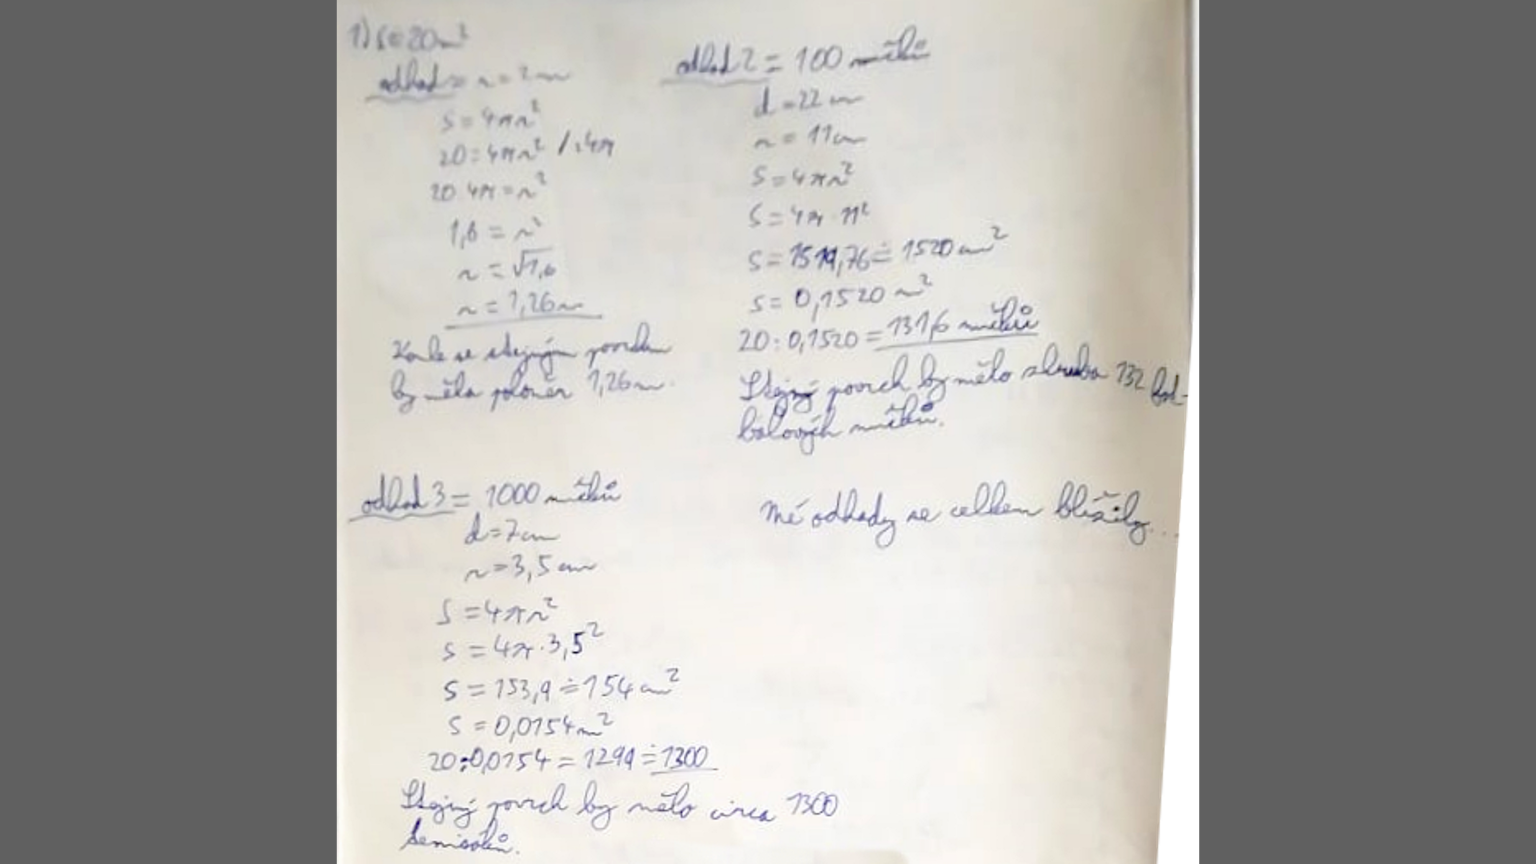 1) S = 20 m²
odhad = r = 2 m
S = 4πr²
20 = 4πr² / : 4π
20 : 4π = r²
1,6 = r²
r = √1,6
r = 1,26 m
Koule se stejným povrchem
by měla poloměr 1,26 m.
odhad 2 = 100 míčků
d = 22 cm
r = 11 cm
S = 4πr²
S = 4π · 11²
S = 1519,76 ≐ 1520 cm²
S = 0,1520 m²
20 : 0,1520 = 131,6 míčků
Stejný povrch by mělo zhruba 132 fot-
balových míčků.
odhad 3 = 1000 míčků
d = 7 cm
r = 3,5 cm
S = 4πr²
S = 4π · 3,5²
S = 153,9 ≐ 154 cm²
S = 0,0154 m²
20 : 0,0154 = 1299 ≐ 1300
Stejný povrch by mělo circa 1300
tenisáků.
Mé odhady se celkem blížily...